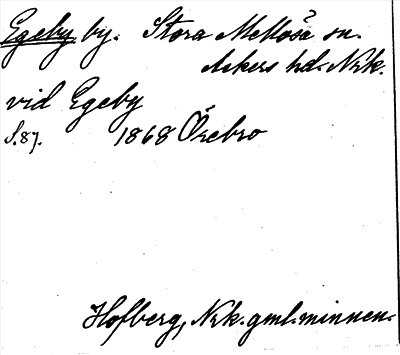 Egeby by. Stora Mellösa sn.
Askers hd. Nrk.
vid Egeby
S. 87. 1868 Örebro
Hofberg, Nrk. gml. minnen.